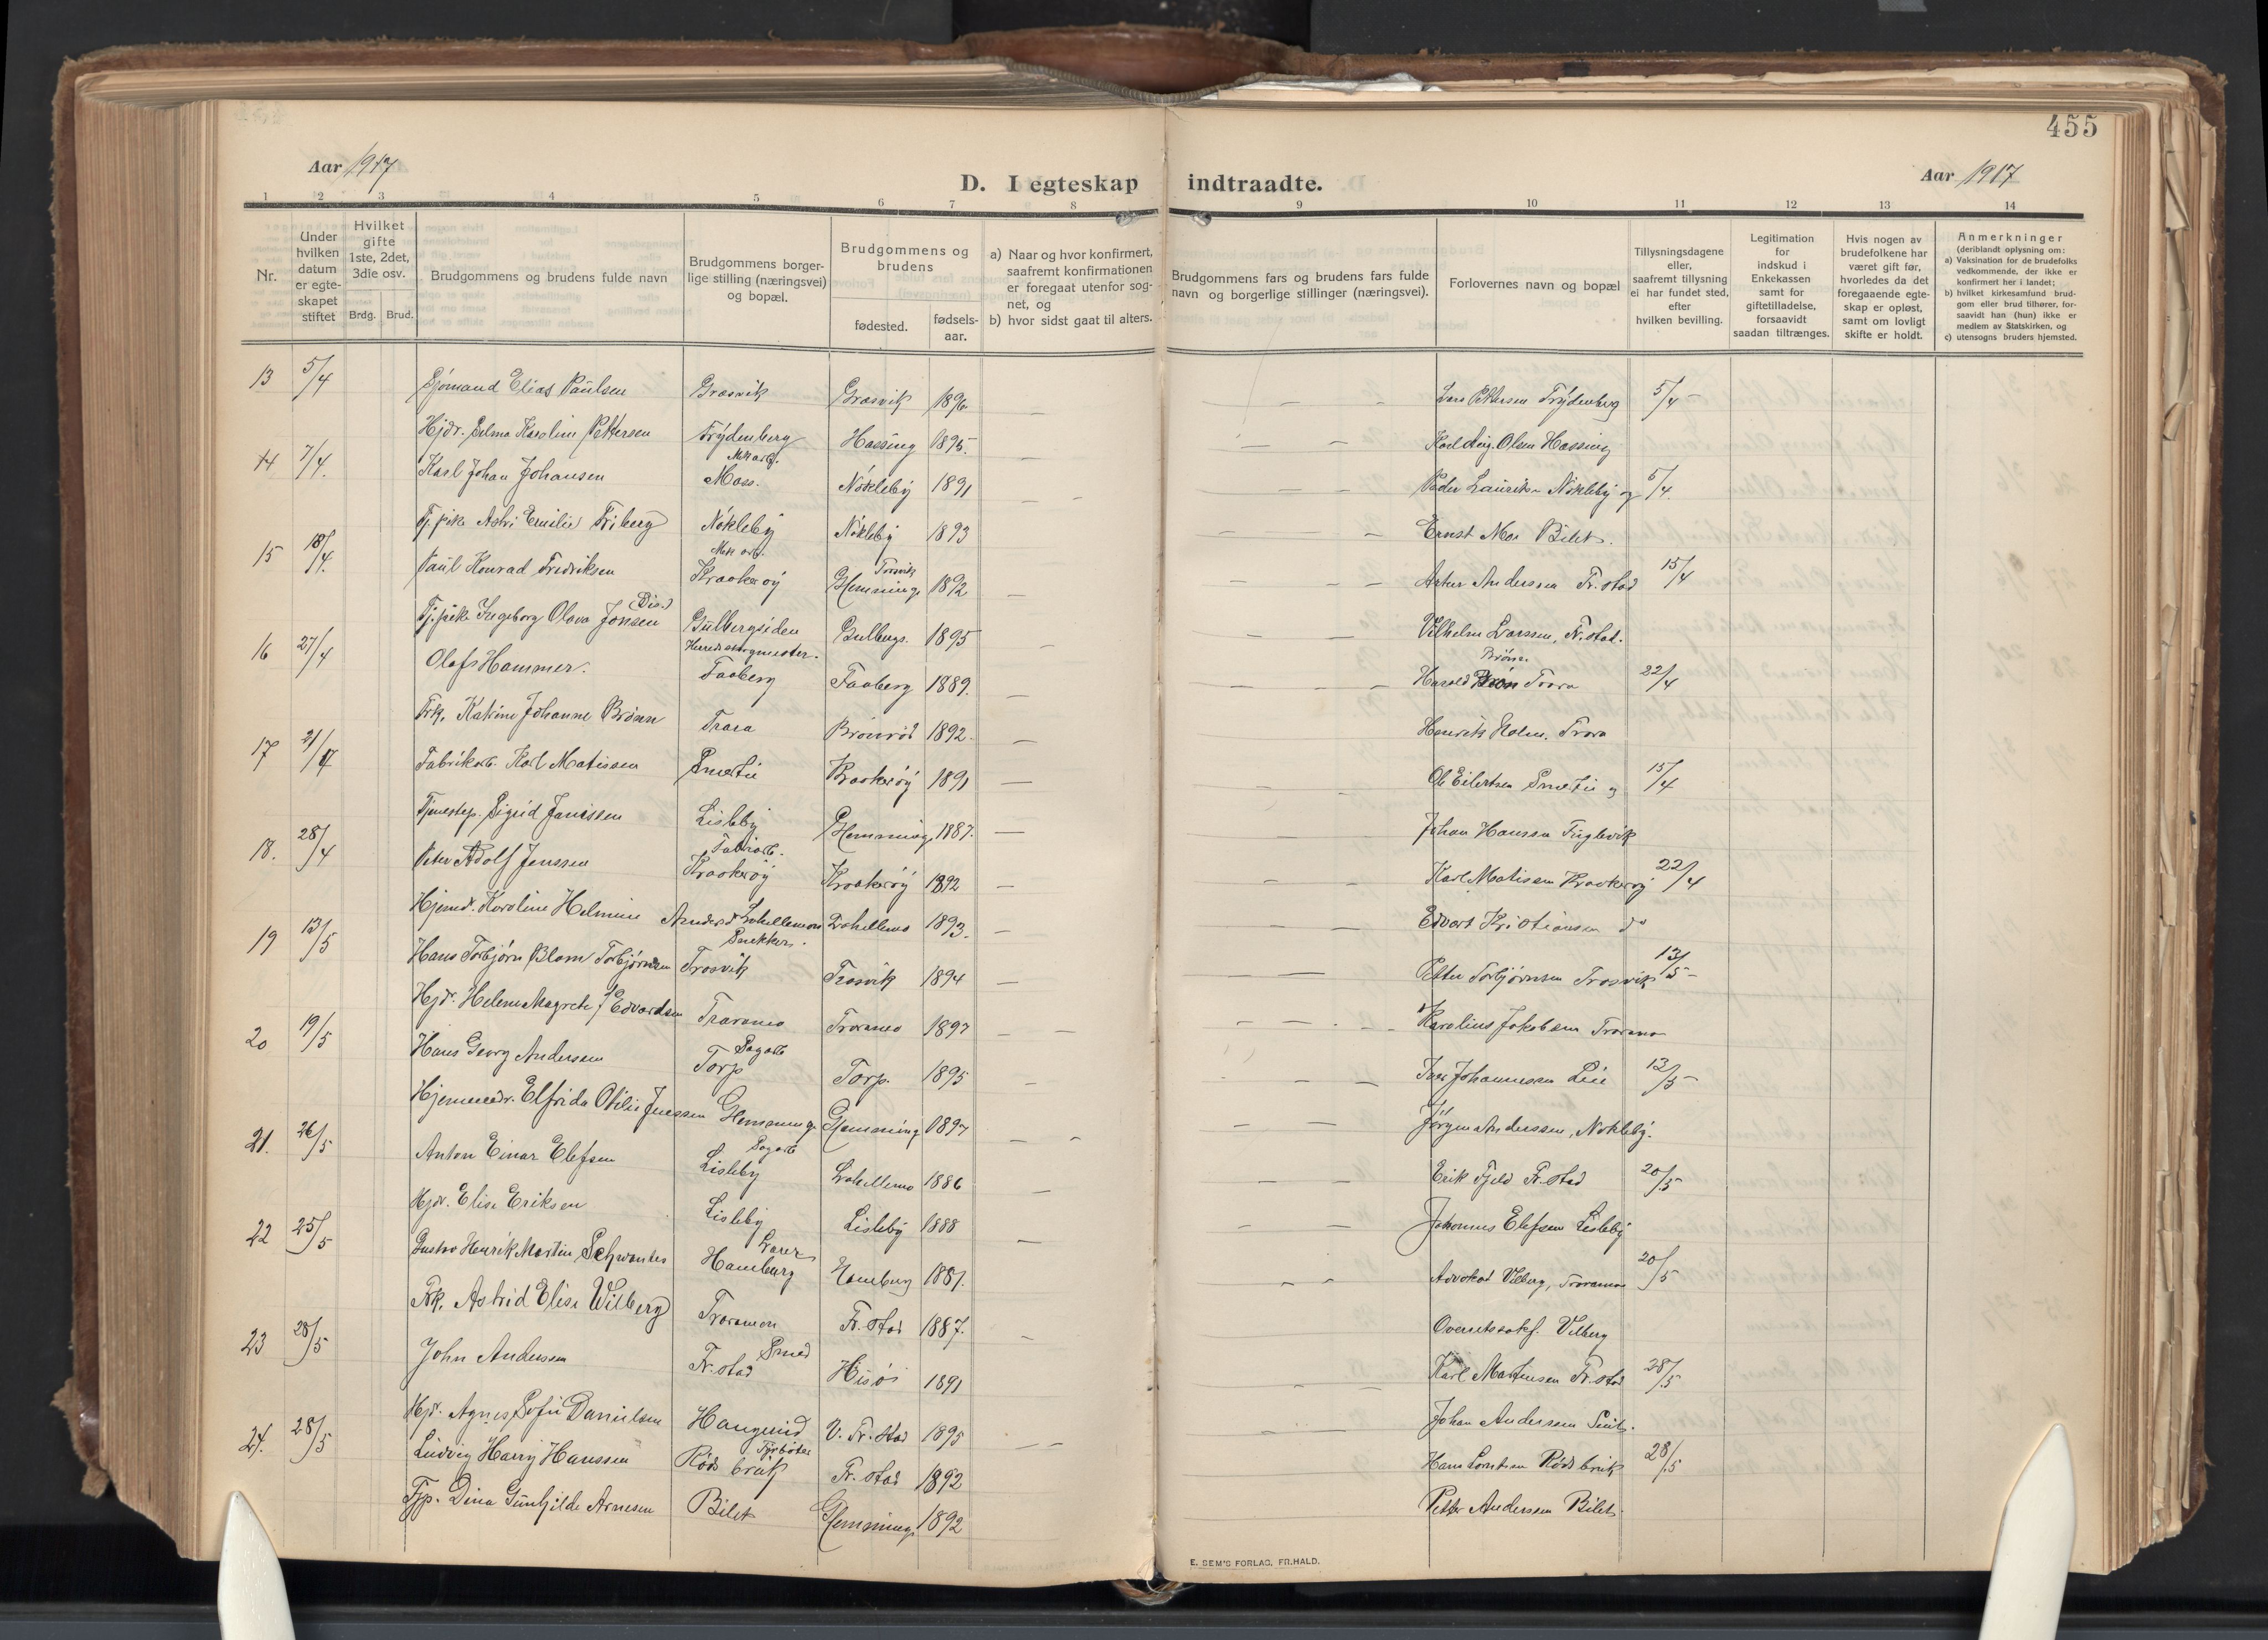 455
Aar 1917
D. I egteskap indtraadte.
Aar 1917
1 2 3 4 5 6 7 8 9 10 11 12 13 14
Nr.
Under hvilken datum er egteskapet stiftet
Hvilket gifte 1ste, 2det, 3die osv.
Brdg. Brud.
Brudgommens og brudens fulde navn
Brudgommens borgerlige stilling (næringsvei) og bopæl.
Brudgommens og brudens
fødested.
fødselsaar.
a) Naar og hvor konfirmert, saafremt konfirmationen er foregaat utenfor sognet, og
b) hvor sidst gaat til alters.
Brudgommens fars og brudens fars fulde navn og borgerlige stillinger (næringsvei).
Forlovernes navn og bopæl
Tillysningsdagene eller, saafremt tillysning ei har fundet sted, efter hvilken bevilling.
Legitimation for indskud i Enkekassen samt for giftetilladelse, forsaavidt saadan tiltrænges.
Hvis nogen av brudefolkene har været gift før, hvorledes da det foregaaende egteskap er opløst, samt om lovligt skifte er holdt.
Anmerkninger
(deriblandt oplysning om:
a) Vaksination for de brudefolks vedkommende, der ikke er konfirmert her i landet;
b) hvilket kirkesamfund brudgom eller brud tilhører, forsaavidt han (hun) ikke er medlem av Statskirken, og
c) utensogns bruders hjemsted.
13 5/4 Sjømand Elias Paulsen Græsvik Græsvik 1896 — — — Lars Pettersen Frydenberg 5/4
Hjdr. Selma Karoline Pettersen Frydenberg Hassing 1895. — — — Karl Aug. Olsen Hassing
Mek arb.
14 7/4. Karl Johan Johansen Moss. Nökleby 1891 — — — Peder Lauritsen Nökleby og 5/4.
Tj.pike Astri Emilie Friberg Nökleby Nökleby 1893 — — Ernst Moe Bilet.
Mek arb. Trosvik
15 18/4. Paul Konrad Fredriksen Kraakeröy Glemminge 1892 — — — Artur Andersen Fr.stad 15/4
(Dis.)
Tj.pike Ingeborg Olava Jonsen Gulbergsiden Gulbergs. 1895 — — — Vilhelm Larssen, Fr.stad.
Herredsskogmester. Brönn
16 27/4 Olaf Hammer. Faaberg Faaberg 1889. — — — Harald Trara 22/4
Frk. Katrine Johanne Brönn Trara 1892. — Henrik Holm. Trara
17 21/4 Fabrikarb. Karl Matissen Smertu Kraakeröy 1891 — — — Ole Eilertsen Smertu og 15/4
Tjenestep. Sigrid Janissen Lisleby Glemminge 1887. — — Johan Hanssen Fuglevik
Fabrarb.
18. 28/4 Peter Adolf Jenssen Kraakeröy Kraakeröy 1892 — — — Karl Matisen Kraakeröy 22/4
Hjemd. Karoline Helmine Andersd. Lahellemoen Lahellemo 1893. — — — Edvart Kristiansen do
Snekker.
19 13/5 Hans Torbjörn Blom Torbjörnsen Trosvik Trosvik 1894 — — — Petter Torbjörnsen Trosvik 13/5
Hjd. Helene Magrete J Edvardsen Traramo Traramo 1897 — — — Karolius Jakobsen Traramo
Sagarb
20 19/5 Hans Georg Andersen Torp Torp. 1895 — — — Johannessen Lie 13/5
Hjemmedr. Elfrida Otilie Jenssen Glemminge Glemminge 1897 — — — Jörgen Anderssen, Nökleby.
Sagarb
21. 26/5 Anton Einar Elefsen Lisleby Lahellemo 1886 — — — Erik Fjeld Fr.stad 20/5
Hjdr. Elise Eriksen Lisleby Lisleby 1888 — — Johannes Elefsen Lisleby
22 25/5 Gustav Henrik Martin Schwantes Hamburg Hamburg 1881. — — Advokat Vilberg, Traramoen 20/5
Frk. Astrid Elise Wilberg Traramoen Fr.stad 1887. — Overretssakf. Vilberg
Smed
23 28/5 John Andersen Fr.stad Hisöi 1891 — — Karl Martinsen Fr.stad 28/5
Hjd. Agnes Sofie Danielsen Haugeund V. Fr.stad 1895 — — Johan Andersen
Fyrböter
24. 28/5 Ludvig Harry Hanssen Röds bruk Fr.stad 1892 — — Hans Lorntsen Röds bruk 28/5
Tjp. Dina Gunhilde Arnesen Bilet Glemminge 1892 Petter Andersen Bilet.
E. SEM'S FORLAG, FR.HALD.